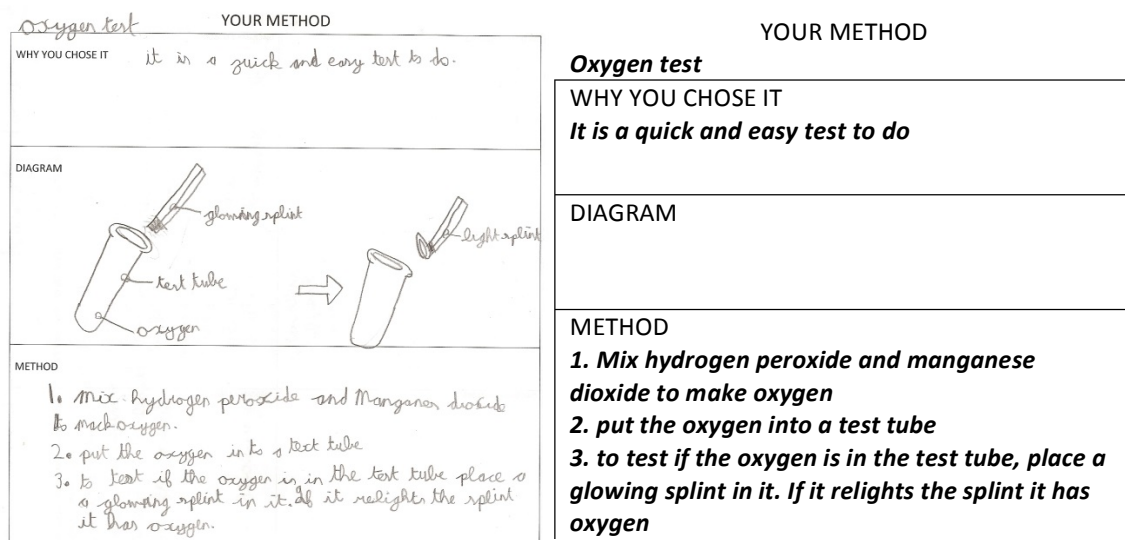 oxygen test
YOUR METHOD
WHY YOU CHOSE IT
it is a quick and easy test to do.
DIAGRAM
glowing splint
light splint
test tube
oxygen
METHOD
1. Mix hydrogen peroxide and Manganes dioxide
to mack oxygen.
2. put the oxygen into a text tube
3. to test if the oxygen is in the test tube place a
a glowing splint in it. If it relights the splint
it has oxygen.
YOUR METHOD
Oxygen test
WHY YOU CHOSE IT
It is a quick and easy test to do
DIAGRAM
METHOD
1. Mix hydrogen peroxide and manganese
dioxide to make oxygen
2. put the oxygen into a test tube
3. to test if the oxygen is in the test tube, place a
glowing splint in it. If it relights the splint it has
oxygen